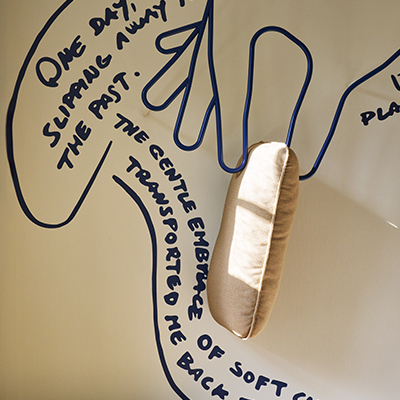 ONE DAY,
SLIPPING AWAY
THE PAST.
THE GENTLE EMBRACE OF SOFT
TRANSPORTED ME BACK